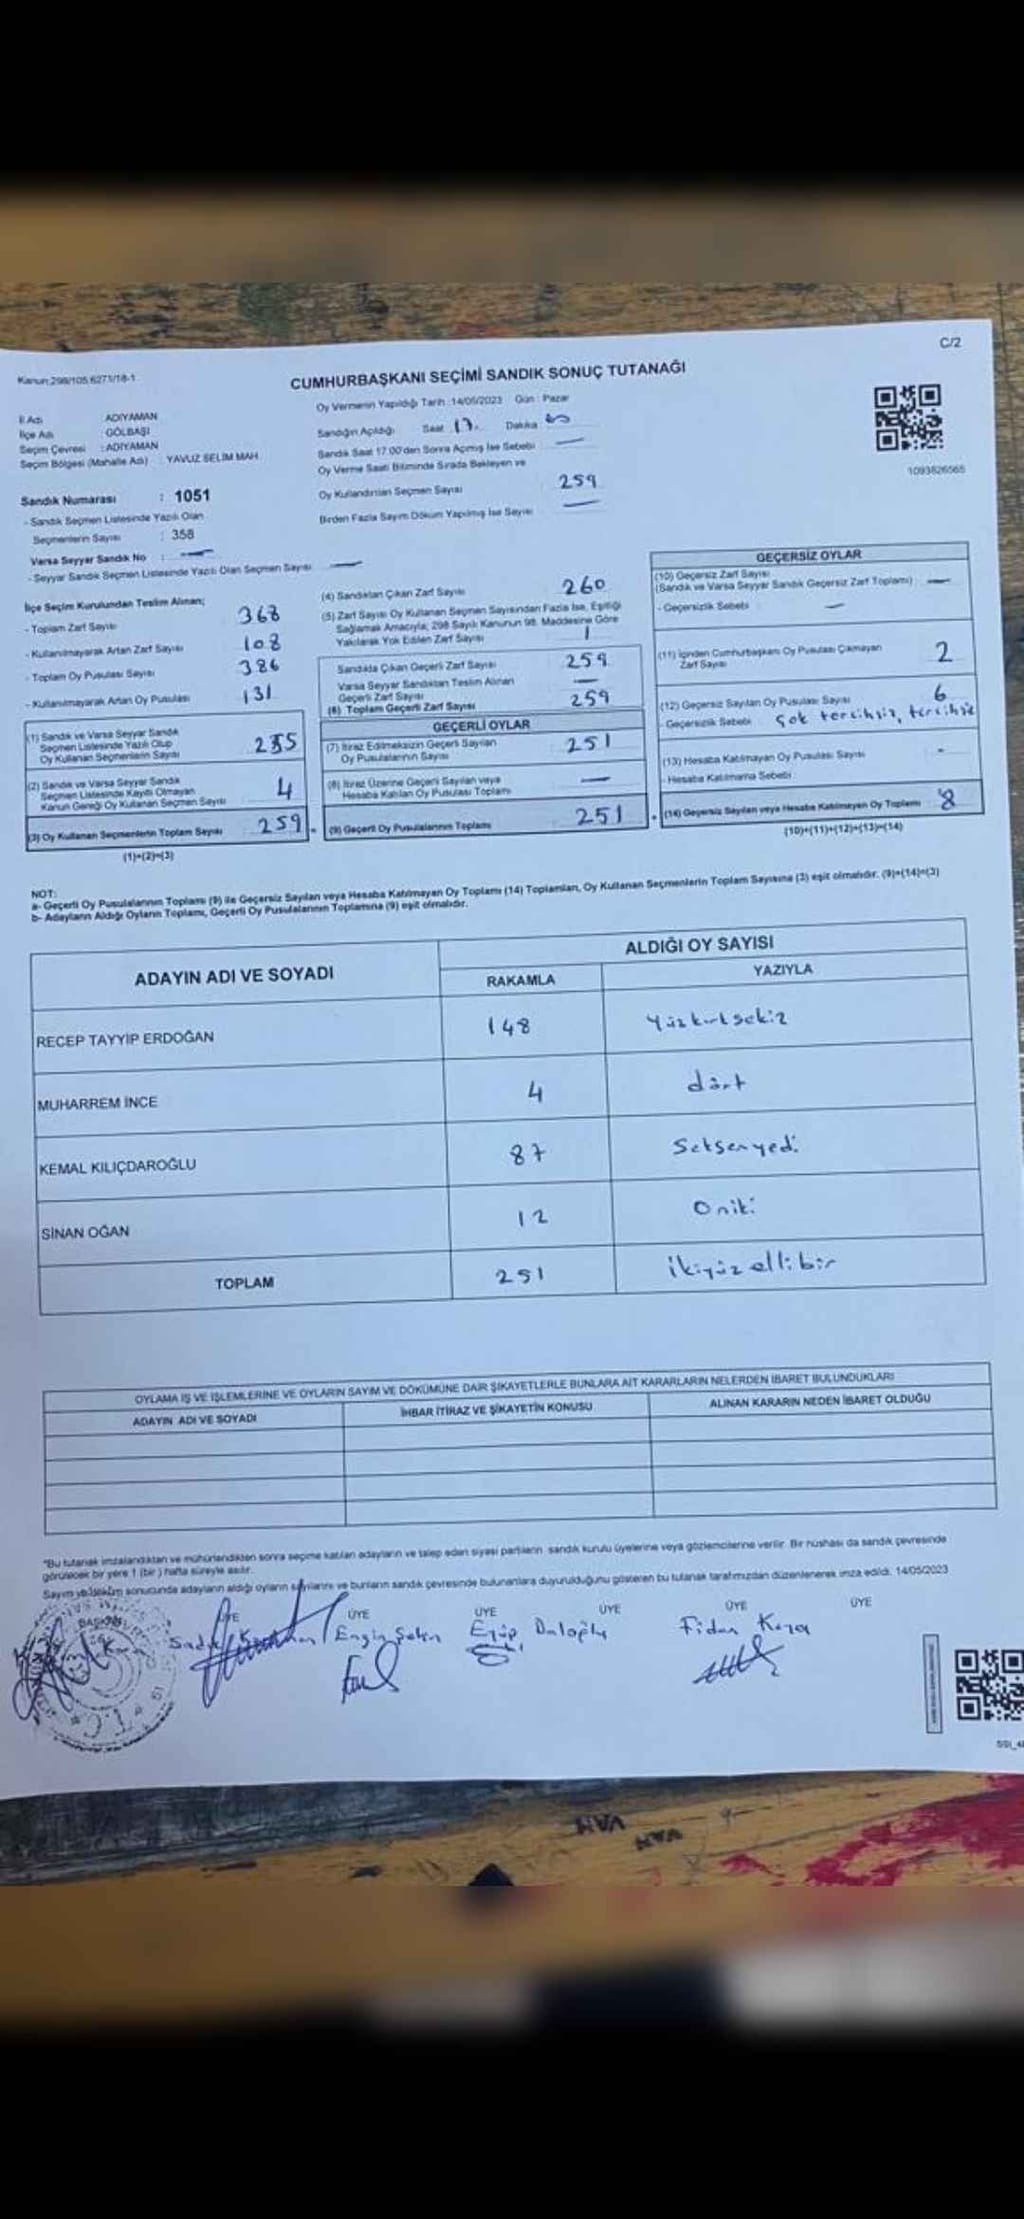 C/2
Kanun:298/105 6271/18-1
CUMHURBAŞKANI SEÇİMİ SANDIK SONUÇ TUTANAĞI
İl Adı ADIYAMAN
İlçe Adı GÖLBAŞI
Seçim Çevresi : ADIYAMAN
Seçim Bölgesi (Mahalle Adı) YAVUZ SELİM MAH.
Oy Vermenin Yapıldığı Tarih :14/05/2023 Gün : Pazar
Sandığın Açıldığı Saat 17. Dakika
Sandık Saat 17:00'den Sonra Açılmış İse Sebebi —
Oy Verme Saati Bitiminde Sırada Bekleyen ve
Oy Kullandırılan Seçmen Sayısı 259
Birden Fazla Sayım Döküm Yapılmış İse Sayısı —
1093826565
Sandık Numarası : 1051
- Sandık Seçmen Listesinde Yazılı Olan
Seçmenlerin Sayısı : 358
Varsa Seyyar Sandık No : —
- Seyyar Sandık Seçmen Listesinde Yazılı Olan Seçmen Sayısı —
İlçe Seçim Kurulundan Teslim Alınan;
- Toplam Zarf Sayısı 368
- Kullanılmayarak Artan Zarf Sayısı 108
- Toplam Oy Pusulası Sayısı 386
- Kullanılmayarak Artan Oy Pusulası 131
(1) Sandık ve Varsa Seyyar Sandık
Seçmen Listesinde Yazılı Olup
Oy Kullanan Seçmenlerin Sayısı 255
(2) Sandık ve Varsa Seyyar Sandık
Seçmen Listesinde Kayıtlı Olmayan
Kanun Gereği Oy Kullanan Seçmen Sayısı 4
(3) Oy Kullanan Seçmenlerin Toplam Sayısı 259
(1)+(2)=(3)
(4) Sandıktan Çıkan Zarf Sayısı 260
(5) Zarf Sayısı Oy Kullanan Seçmen Sayısından Fazla İse, Eşitliği
Sağlamak Amacıyla; 298 Sayılı Kanunun 98. Maddesine Göre
Yakılarak Yok Edilen Zarf Sayısı 1
Sandıkta Çıkan Geçerli Zarf Sayısı 259
Varsa Seyyar Sandıktan Teslim Alınan
Geçerli Zarf Sayısı —
(6) Toplam Geçerli Zarf Sayısı 259
GEÇERLİ OYLAR
(7) İtiraz Edilmeksizin Geçerli Sayılan
Oy Pusulalarının Sayısı 251
(8) İtiraz Üzerine Geçerli Sayılan veya
Hesaba Katılan Oy Pusulası Toplamı —
(9) Geçerli Oy Pusulalarının Toplamı 251
GEÇERSİZ OYLAR
(10) Geçersiz Zarf Sayısı
(Sandık ve Varsa Seyyar Sandık Geçersiz Zarf Toplamı) —
- Geçersizlik Sebebi —
(11) İçinden Cumhurbaşkanı Oy Pusulası Çıkmayan
Zarf Sayısı 2
(12) Geçersiz Sayılan Oy Pusulası Sayısı 6
- Geçersizlik Sebebi Çok tercihsiz, tercihsiz
(13) Hesaba Katılmayan Oy Pusulası Sayısı -
- Hesaba Katılmama Sebebi
(14) Geçersiz Sayılan veya Hesaba Katılmayan Oy Toplamı 8
(10)+(11)+(12)+(13)=(14)
NOT:
a- Geçerli Oy Pusulalarının Toplamı (9) ile Geçersiz Sayılan veya Hesaba Katılmayan Oy Toplamı (14) Toplamları, Oy Kullanan Seçmenlerin Toplam Sayısına (3) eşit olmalıdır. (9)+(14)=(3)
b- Adayların Aldığı Oyların Toplamı, Geçerli Oy Pusulalarının Toplamına (9) eşit olmalıdır.
ADAYIN ADI VE SOYADI ALDIĞI OY SAYISI
RAKAMLA YAZIYLA
RECEP TAYYİP ERDOĞAN 148 Yüzkırksekiz
MUHARREM İNCE 4 dört
KEMAL KILIÇDAROĞLU 87 Seksenyedi
SİNAN OĞAN 12 Oniki
TOPLAM 251 ikiyüzellibir
OYLAMA İŞ VE İŞLEMLERİNE VE OYLARIN SAYIM VE DÖKÜMÜNE DAİR ŞİKAYETLERLE BUNLARA AİT KARARLARIN NELERDEN İBARET BULUNDUKLARI
ADAYIN ADI VE SOYADI İHBAR İTİRAZ VE ŞİKAYETİN KONUSU ALINAN KARARIN NEDEN İBARET OLDUĞU
"Bu tutanak imzalandıktan ve mühürlendikten sonra seçime katılan adayların ve talep eden siyasi partilerin sandık kurulu üyelerine veya gözlemcilerine verilir. Bir nüshası da sandık çevresinde
görülecek bir yere 1 (bir) hafta süreyle asılır.
Sayım ve döküm sonucunda adayların aldığı oyların sayılarını ve bunların sandık çevresinde bulunanlara duyurulduğunu gösteren bu tutanak tarafımızdan düzenlenerek imza edildi. 14/05/2023
BAŞKAN ÜYE ÜYE ÜYE ÜYE ÜYE ÜYE
Engin Şahin Eyüp Fidan Kara
T.C.
VAN
VAN